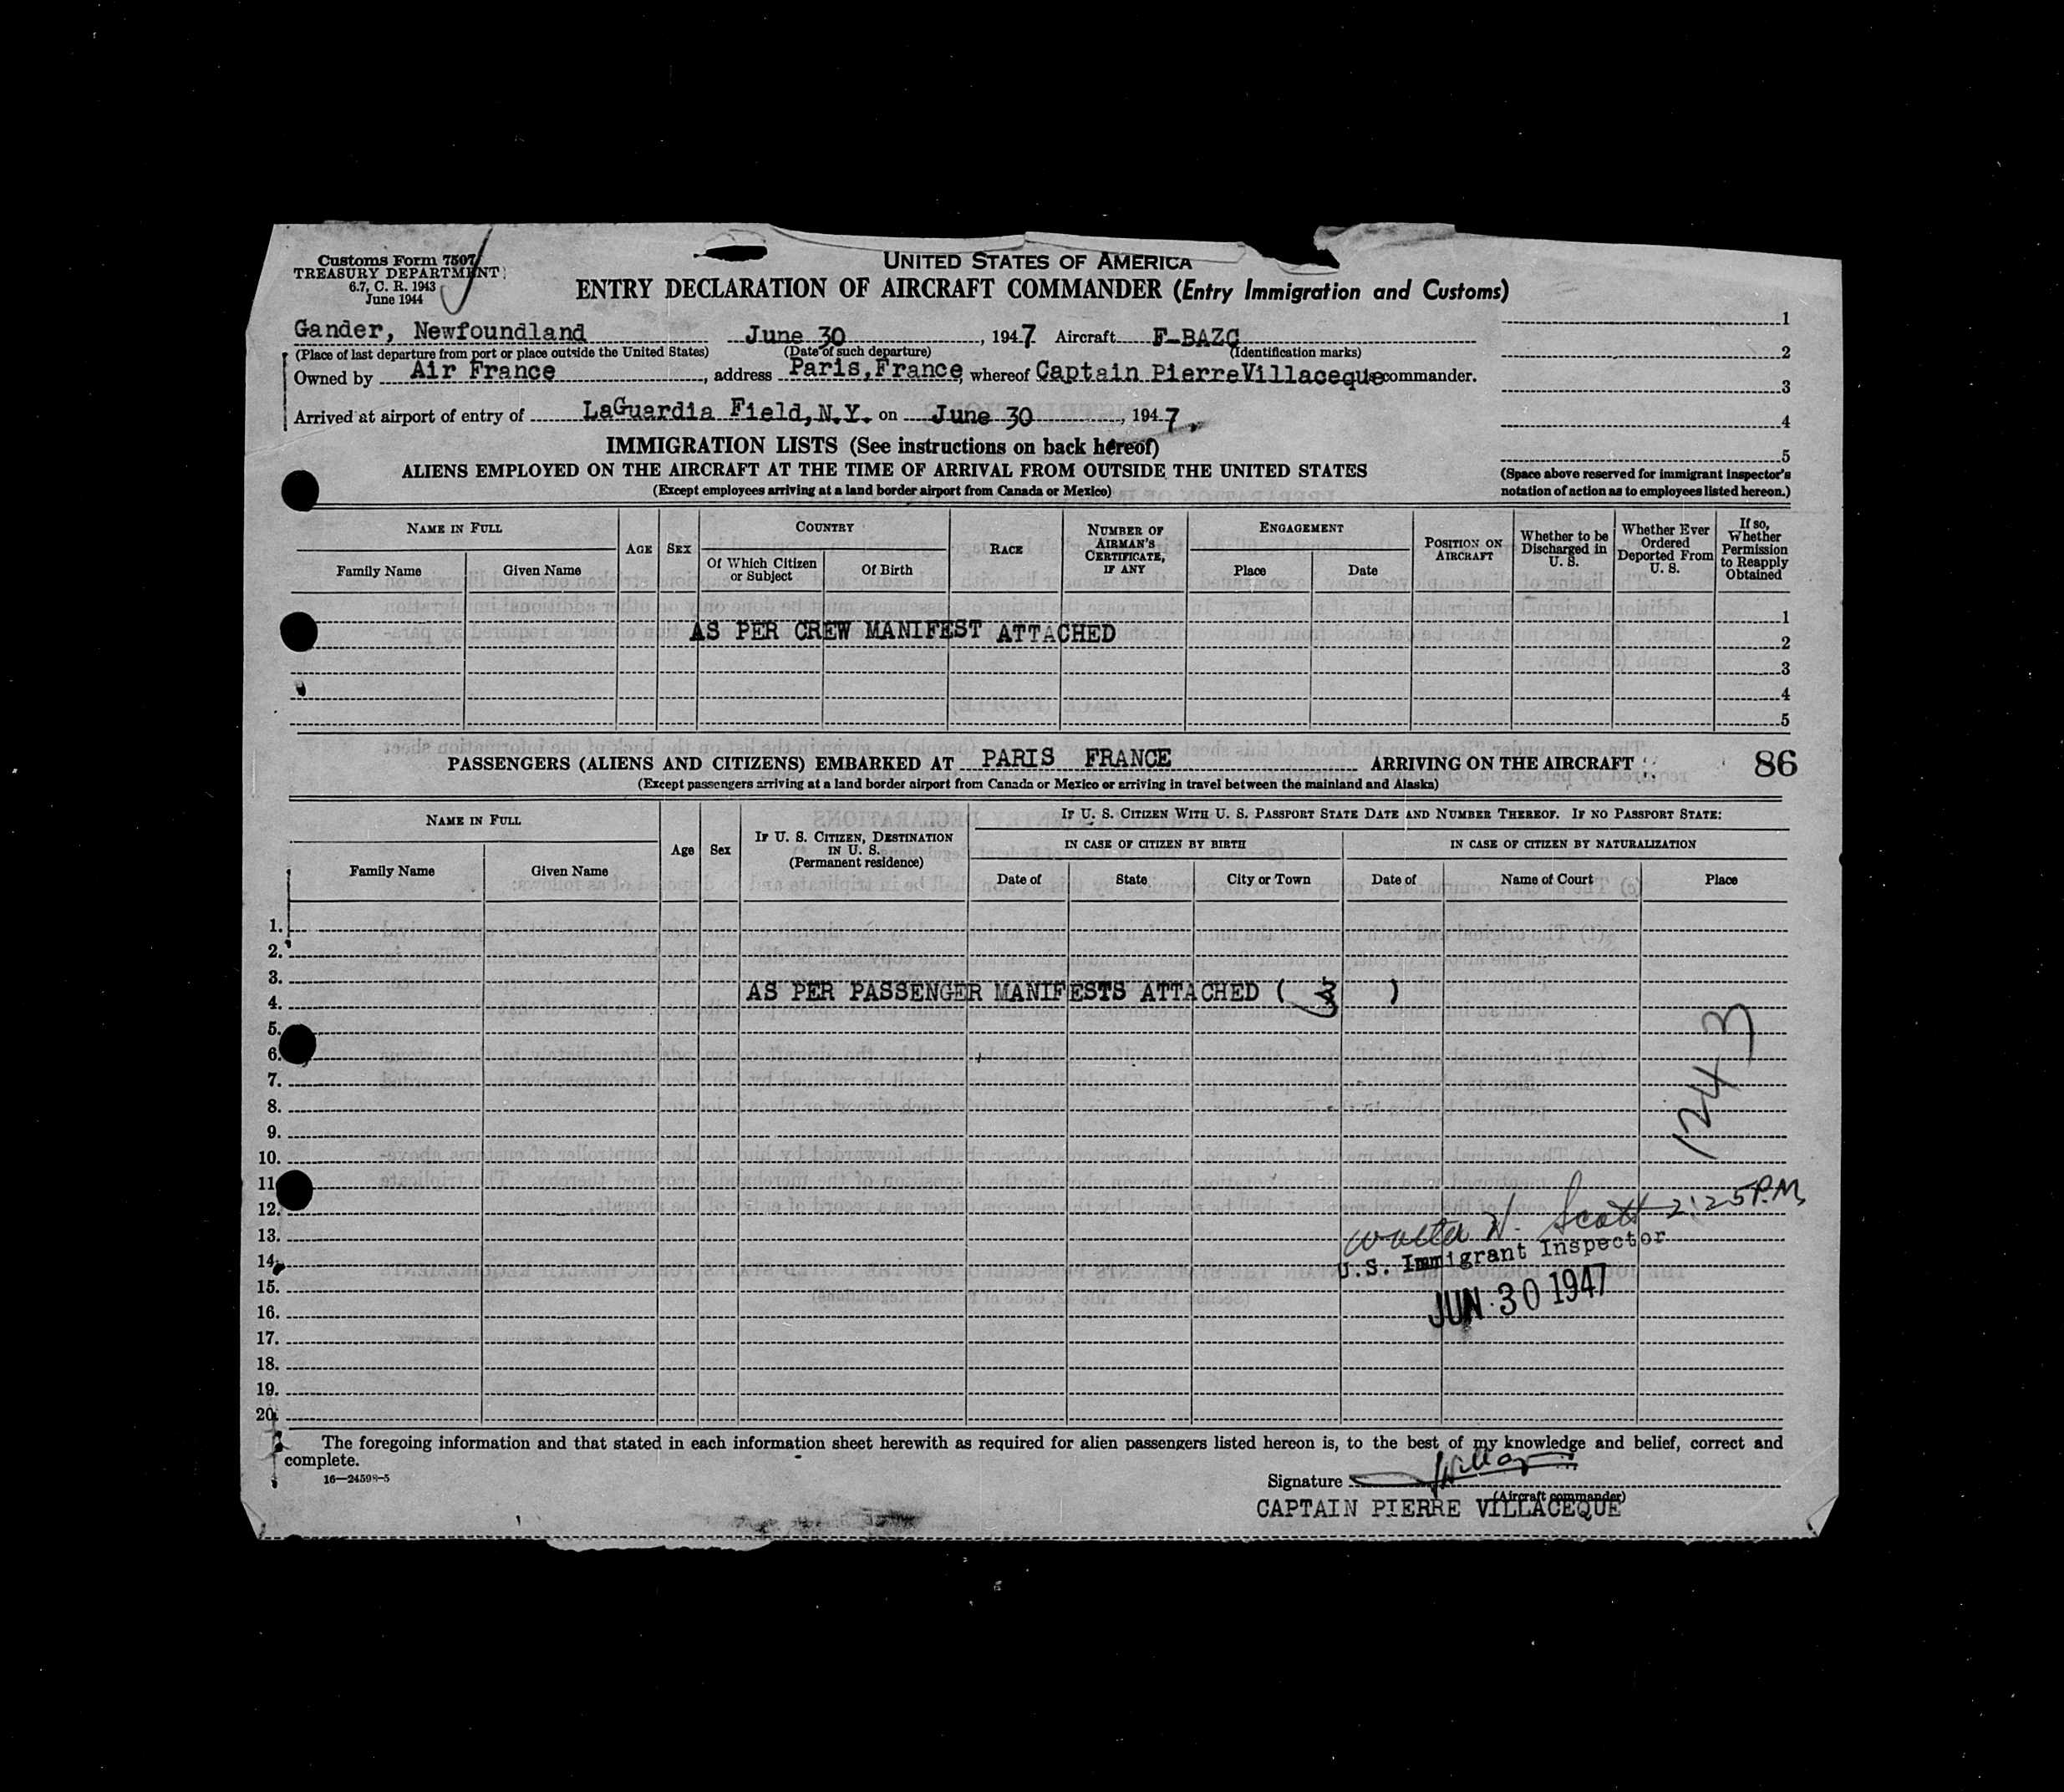 Customs Form 7507
TREASURY DEPARTMENT
6.7, C. R. 1943
June 1944
UNITED STATES OF AMERICA
ENTRY DECLARATION OF AIRCRAFT COMMANDER (Entry Immigration and Customs)
Gander, Newfoundland June 30, 1947 Aircraft F-BAZC
(Place of last departure from port or place outside the United States) (Date of such departure) (Identification marks)
Owned by Air France, address Paris, France, whereof Captain Pierre Villaceque commander.
Arrived at airport of entry of LaGuardia Field, N.Y. on June 30, 1947.
1
2
3
4
5
(Space above reserved for immigrant inspector's
notation of action as to employees listed hereon.)
IMMIGRATION LISTS (See instructions on back hereof)
ALIENS EMPLOYED ON THE AIRCRAFT AT THE TIME OF ARRIVAL FROM OUTSIDE THE UNITED STATES
(Except employees arriving at a land border airport from Canada or Mexico)
NAME IN FULL
Family Name Given Name
AGE
SEX
COUNTRY
Of Which Citizen
or Subject
Of Birth
RACE
NUMBER OF
AIRMAN'S
CERTIFICATE,
IF ANY
ENGAGEMENT
Place Date
POSITION ON
AIRCRAFT
Whether to be
Discharged in
U. S.
Whether Ever
Ordered
Deported From
U. S.
If so,
Whether
Permission
to Reapply
Obtained
1
AS PER CREW MANIFEST ATTACHED
2
3
4
5
PASSENGERS (ALIENS AND CITIZENS) EMBARKED AT PARIS FRANCE ARRIVING ON THE AIRCRAFT
86
(Except passengers arriving at a land border airport from Canada or Mexico or arriving in travel between the mainland and Alaska)
NAME IN FULL
Family Name Given Name
Age
Sex
IF U. S. CITIZEN, DESTINATION
IN U. S.
(Permanent residence)
IF U. S. CITIZEN WITH U. S. PASSPORT STATE DATE AND NUMBER THEREOF. IF NO PASSPORT STATE:
IN CASE OF CITIZEN BY BIRTH
Date of State City or Town
IN CASE OF CITIZEN BY NATURALIZATION
Date of Name of Court Place
1.
2.
3.
AS PER PASSENGER MANIFESTS ATTACHED ( )
4.
5.
6.
7.
8.
9.
10.
11
12.
13.
14.
15.
16.
17.
18.
19.
20.
1243
Walter W. Scott 2:25 P.M.
U.S. Immigrant Inspector
JUN 30 1947
The foregoing information and that stated in each information sheet herewith as required for alien passengers listed hereon is, to the best of my knowledge and belief, correct and
complete.
16—24598-5
Signature
(Aircraft commander)
CAPTAIN PIERRE VILLACEQUE